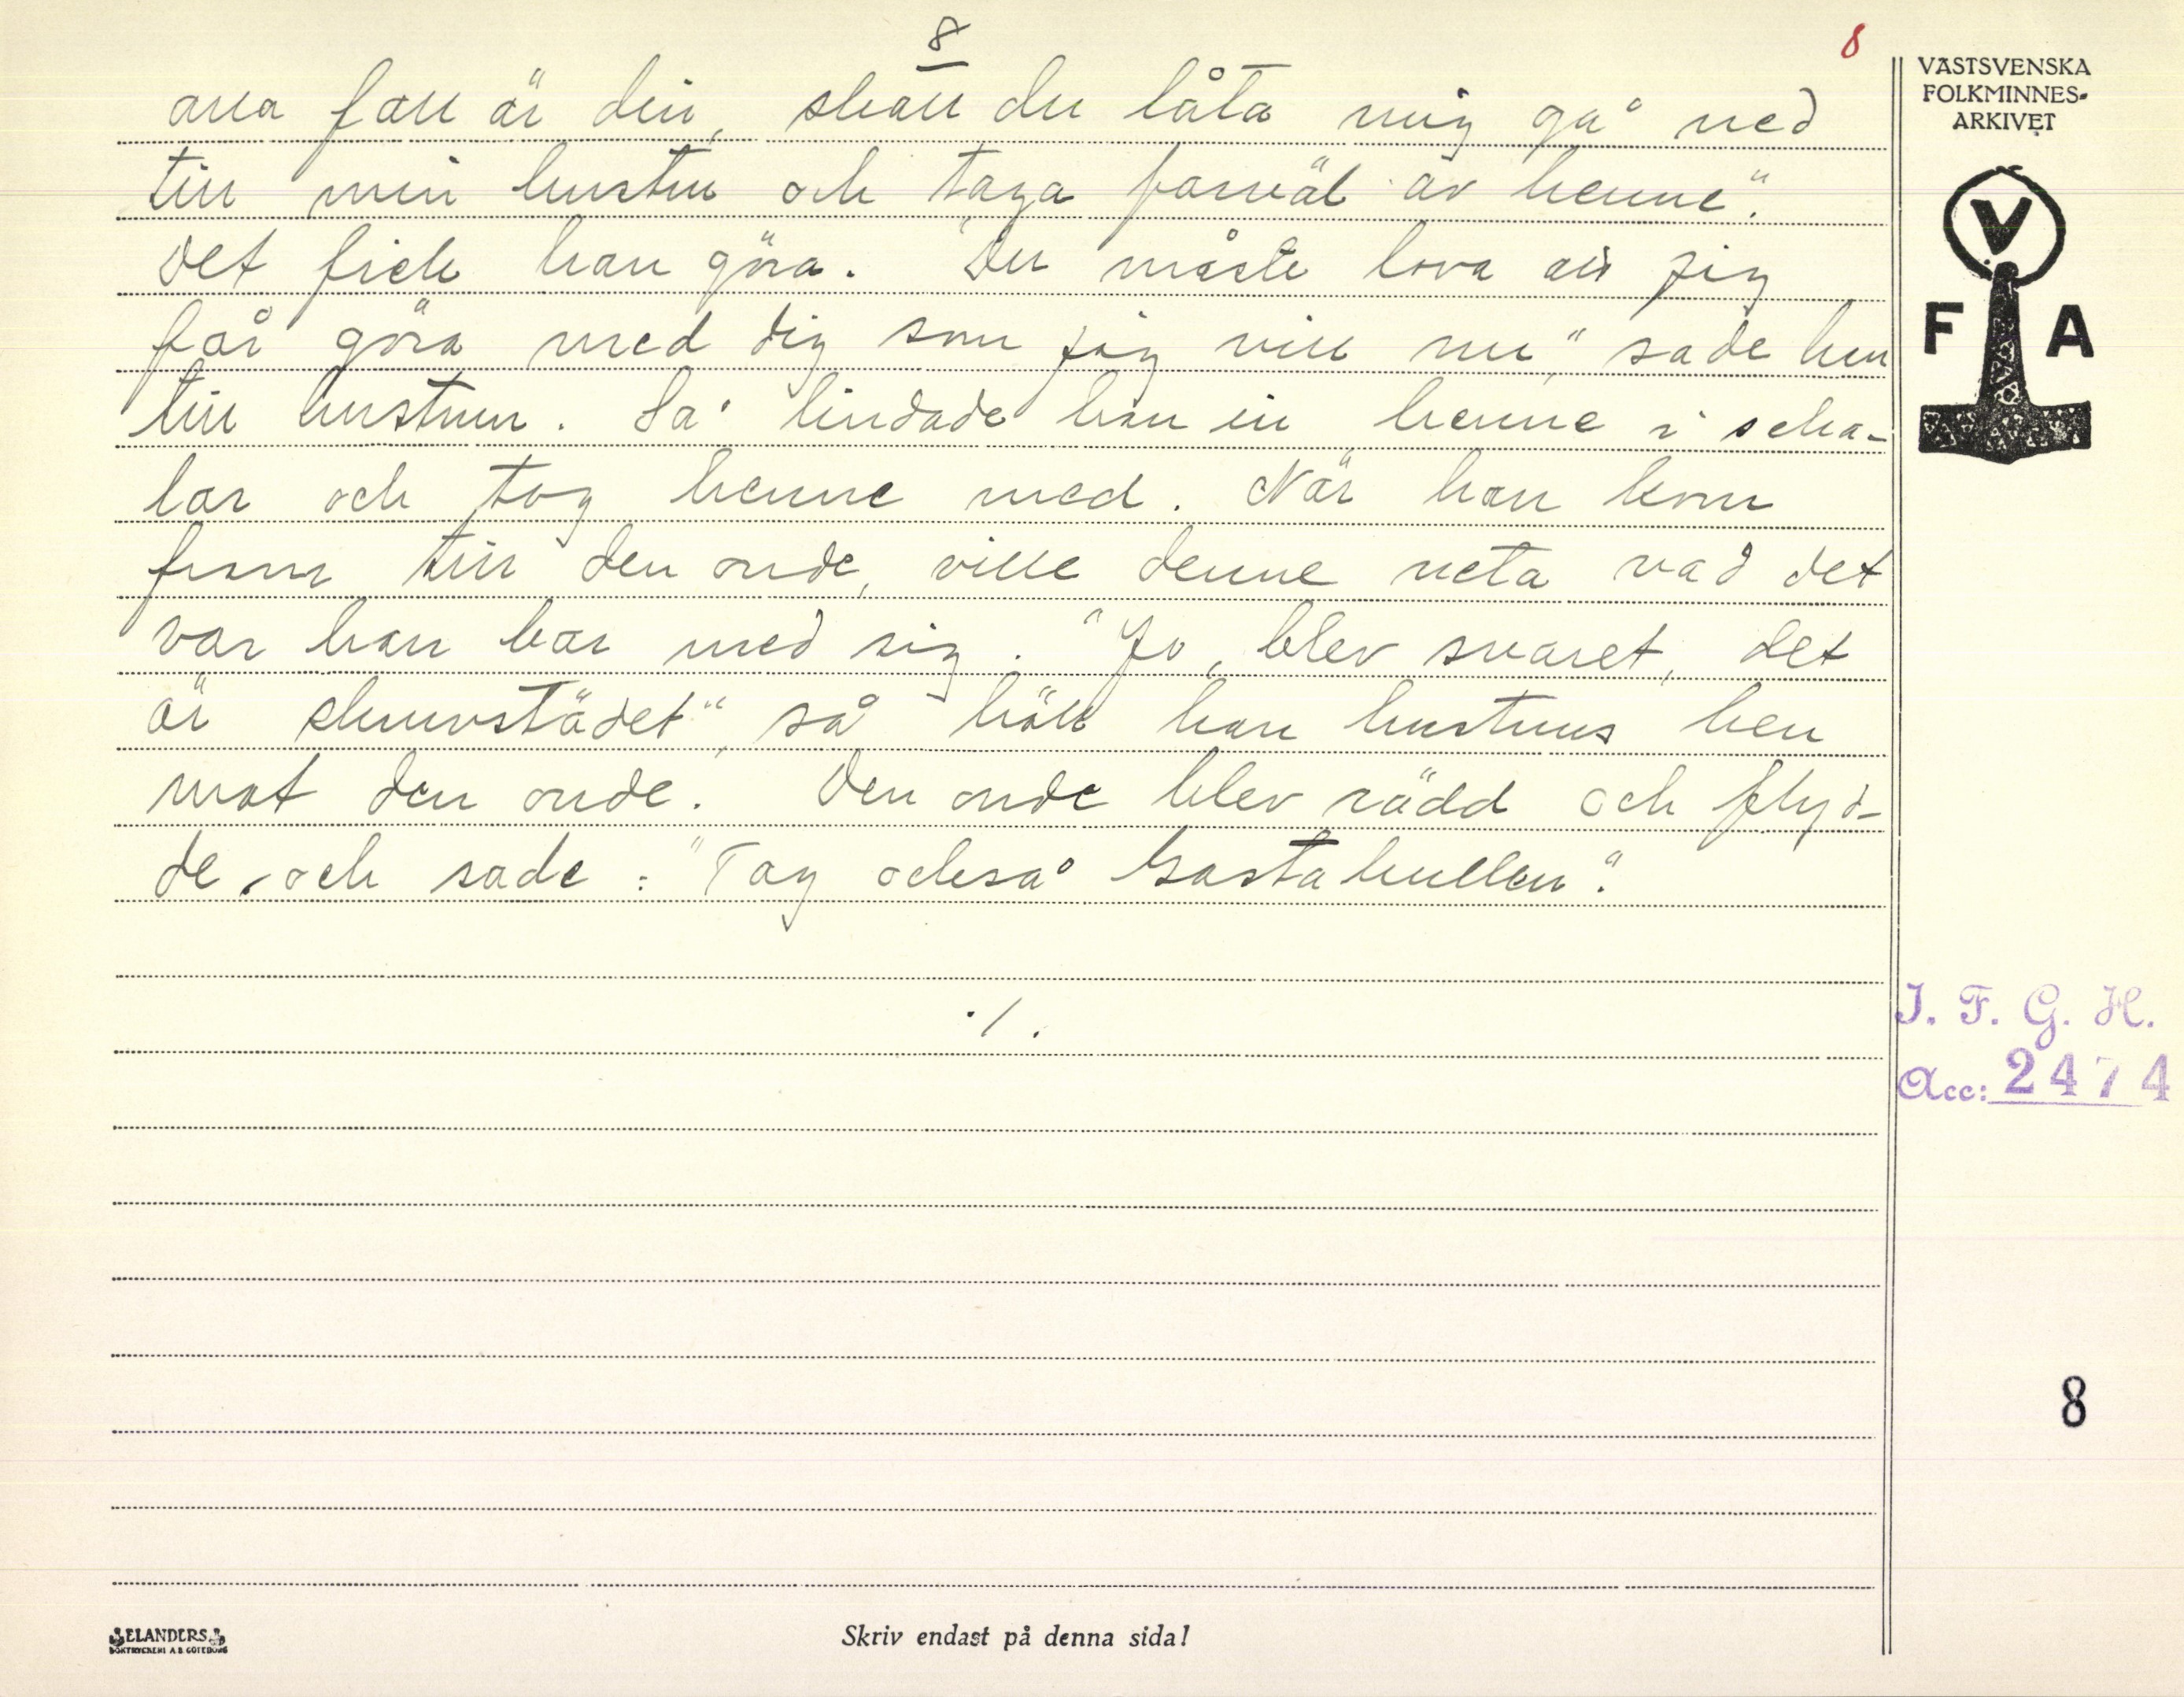 8
8
alla fall är din, skall du låta mig gå ned
till min hustru och taga farväl av henne".
Det fick han göra. "Du måste lova att jag
får göra med dig som jag vill nu," sade han
till hustrun. Så lindade han in henne i scha-
lar och tog henne med. När han kom
fram till den onde, ville denne veta vad det
var han bar med sig. "Jo, blev svaret, det
är skruvstädet", så höll han hustruns ben
mot den onde. Den onde blev rädd och flyd-
de, och sade: "Tag också hullen".
./.
VÄSTSVENSKA
FOLKMINNES-
ARKIVET
V
F A
I. F. G. H.
Acc: 2474
8
ELANDERS
BOKTRYCKERI A.B. GÖTEBORG
Skriv endast på denna sida!